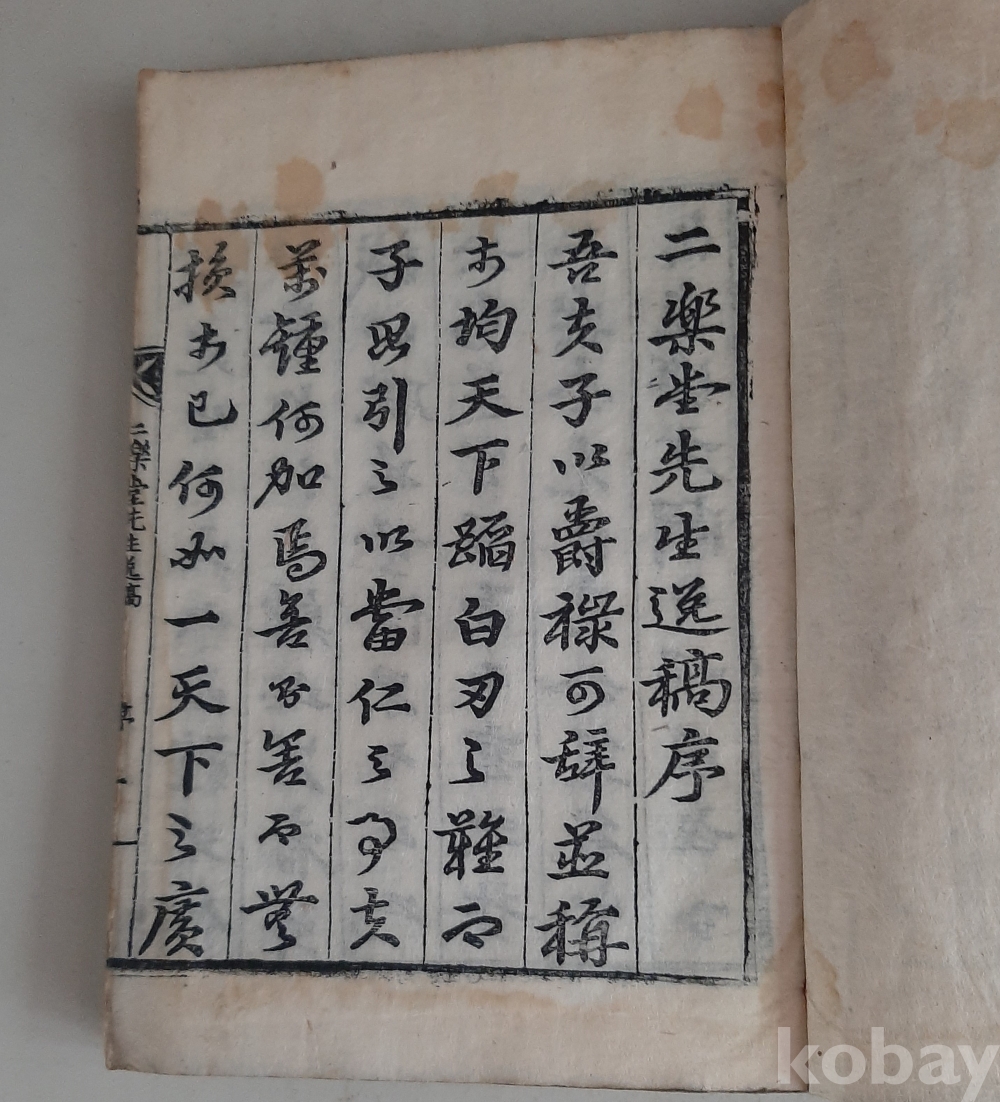 二樂堂先生逸稿序
吾夫子以爵祿可辭並稱
於均天下蹈白刃之難而
子思引之以當仁之事夫
萬鍾何加焉善善而無
損於己何如一天下之廣
二樂堂先生逸稿 序 一
kobay